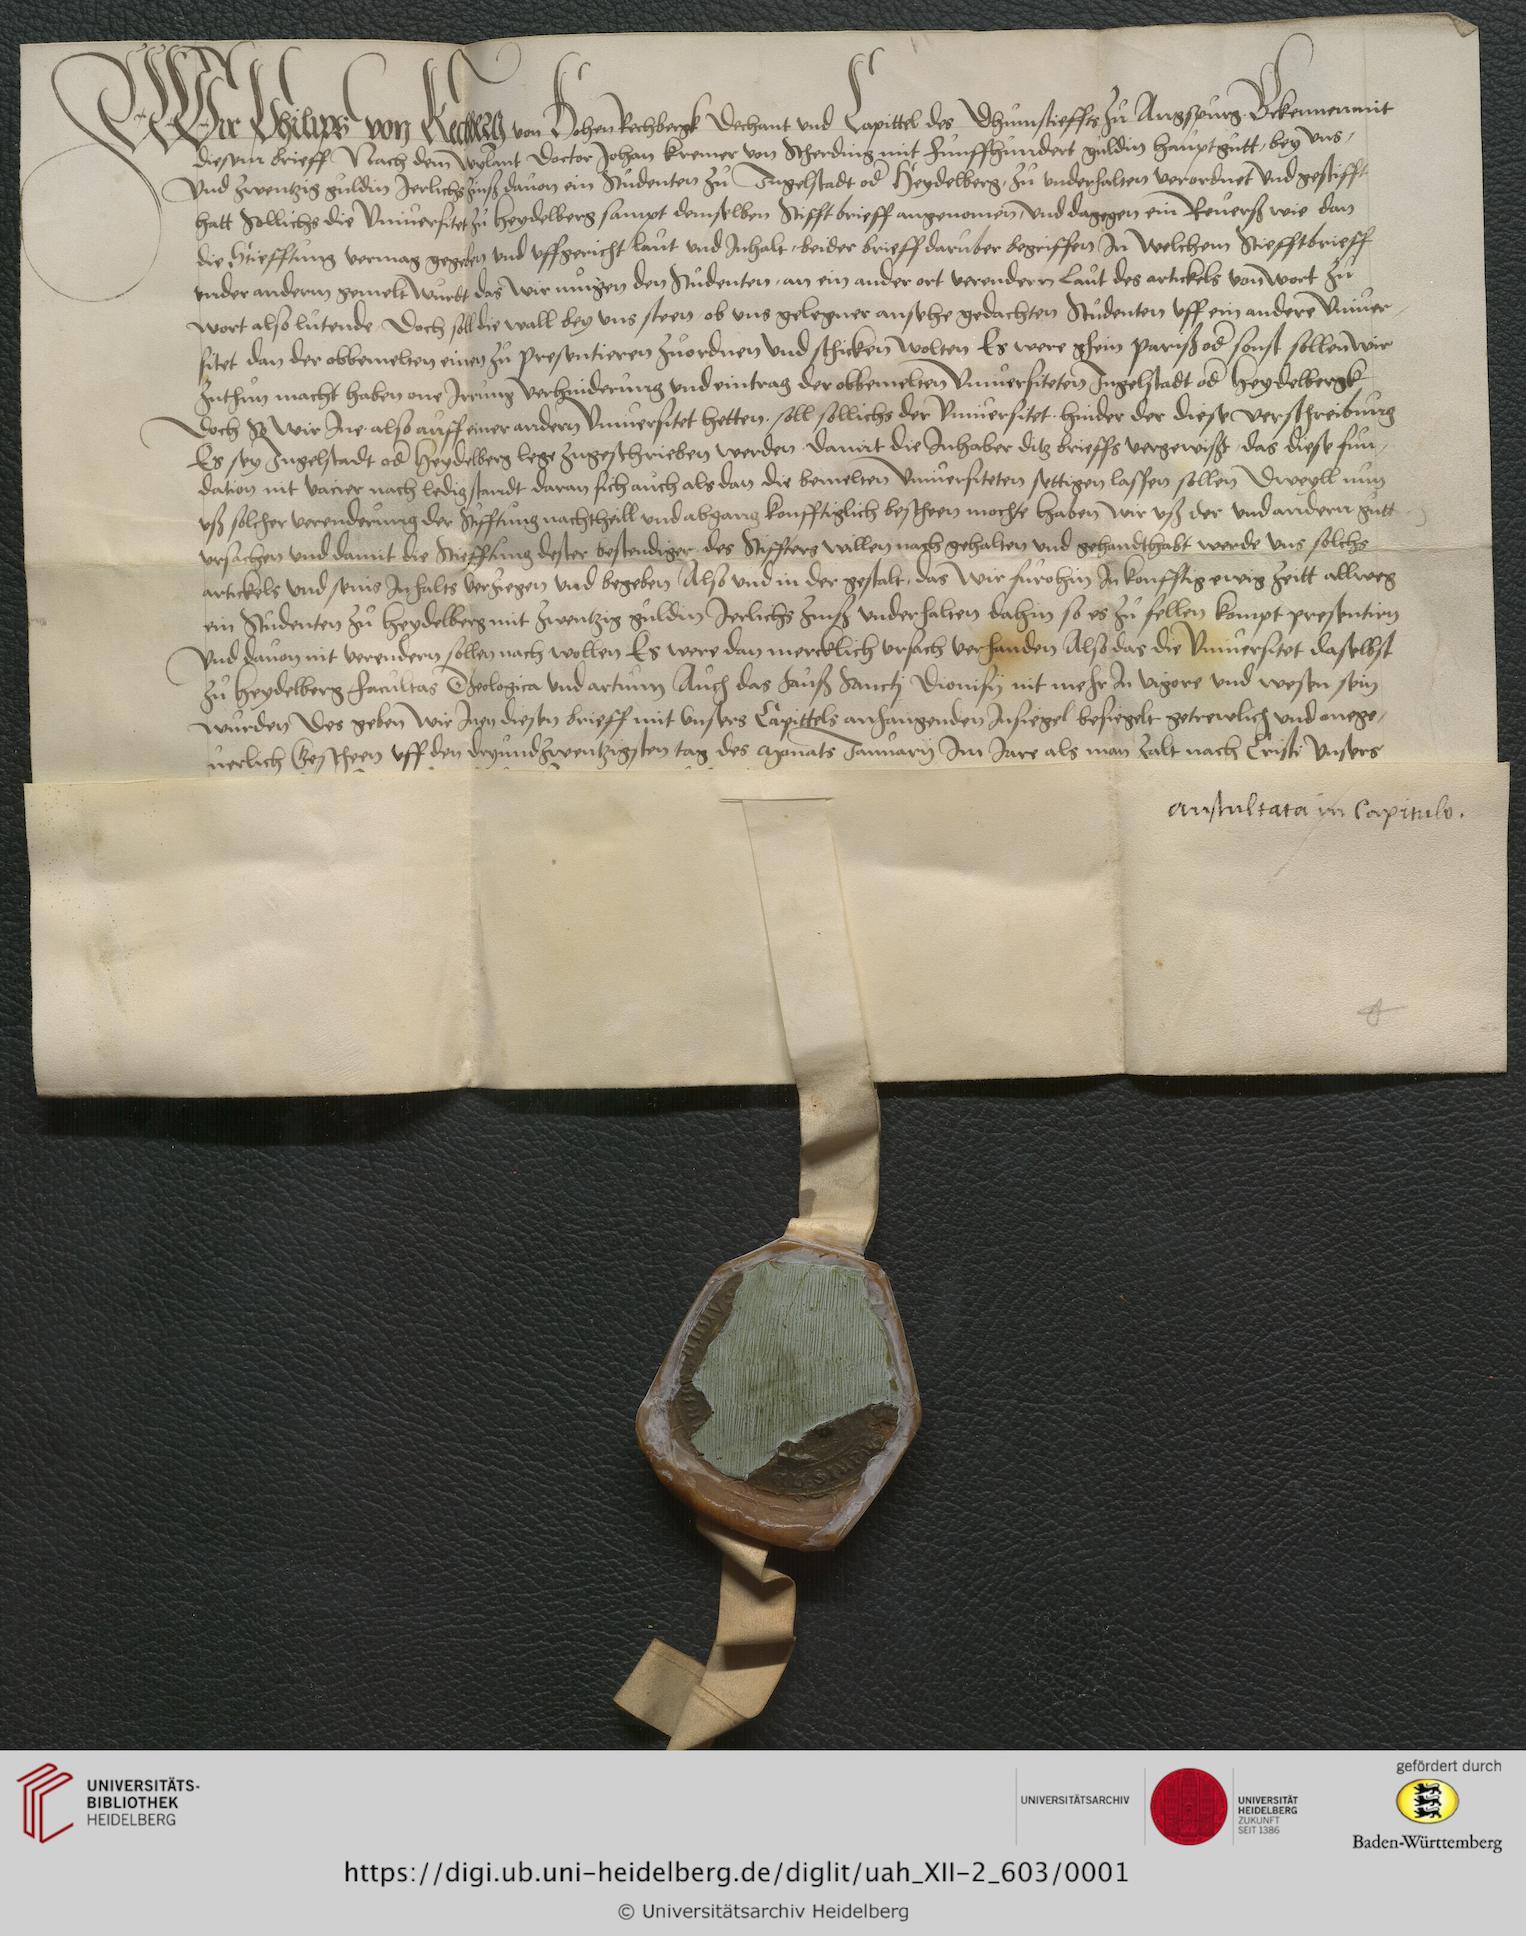 Wir Philips von Rechberg von Hohen Rechbergk Dechant vnd Capittel des Dhumstieffts zu Augspurg Bekennen mit
diesem brieff Nach dem wylant Doctor Johan Kremer von Scherding mit funffhundert guldin hauptgutt, bey vns,
Vnd zwentzig guldin Jerlichs zinß dauon ein Studenten zu Ingelstadt od Heydelberg, zu vnderhalten verordnet vnd gestifft
hatt Sollichs die Vniuersitet zu heydelberg sampt demselben Stifft brieff angenomen, vnd dagegen ein Reuerß wie dan
die Stiefftung vermag gegeben vnd vffgericht laut vnd Inhalt, beider brieff daruber begriffen In welchem Stiefftbrieff
vnder anderm gemelt wurdt das wir mügen den Studenten, an ein ander ort verendern Laut des artickels von wort zu
wort also lutende, Doch soll die wall bey vns steen, ob vns gelegner ansehe gedachten Studenten vff ein andere Vniuer,
sitet dan der obbemelten einen zu presentieren zuordnen vnd schicken wolten Es were ghein pariß od sonst sollen wir
zuthun macht haben one Irrung verhinderung vnd eintrag der obbemelten Vniuersiteten Ingelstadt od Heydelbergk
Doch So wir Jne also auff einer andern Vniuersitet hetten, soll sollichs der Vniuersitet, hinder der diese verschreibung
Es sey Ingelstadt od Heydelberg lege zugeschrieben werden, damit die Inhaber ditz brieffs vergewißt, das diese fun,
dation nit vacier nach ledig standt daran sich auch als dan die bemelten Vniuersiteten settigen lassen sollen Dweyll nun
vß solcher verenderung der Stifftung nachtheill vnd abgang konfftiglich bescheen mochte haben wir vß der vnd andern gutt
vrsachen vnd damit die Stiefftung dester bestendiger, des Stiffters willen nach gehalten vnd gehandthabt werde vns solchs
artickels vnd seins Inhalts verziegen vnd begeben Also vnd in der gestalt, das wir furohin In konfftig ewig zeitt allweg
ein Studenten zu Heydelberg mit zwentzig guldin Jerlichs zinß vnderhalten dahin so es zu fellen kompt presentirn
Vnd dauon nit verendern sollen nach wollen Es were dan mercklich vrsach verhanden Also das die Vniuersitet daselbst
zu Heydelberg facultas Theologica vnd artium Auch das hauß Sancti Dionisij nit mehr In vigore vnd wesen sein
wurden Des geben wir Inen diesen brieff mit vnsers Capittels anhangenden Insiegel besiegelt getrewlich vnd onege,
uerlich Bescheen vff den dryundzwentzigsten tag des Monats Januarij Im Jare als man zalt nach Cristi vnsers
auscultata in Capitulo.
UNIVERSITÄTS-
BIBLIOTHEK
HEIDELBERG
UNIVERSITÄTSARCHIV
UNIVERSITÄT
HEIDELBERG
ZUKUNFT
SEIT 1386
gefördert durch
Baden-Württemberg
https://digi.ub.uni-heidelberg.de/diglit/uah_XII-2_603/0001
© Universitätsarchiv Heidelberg